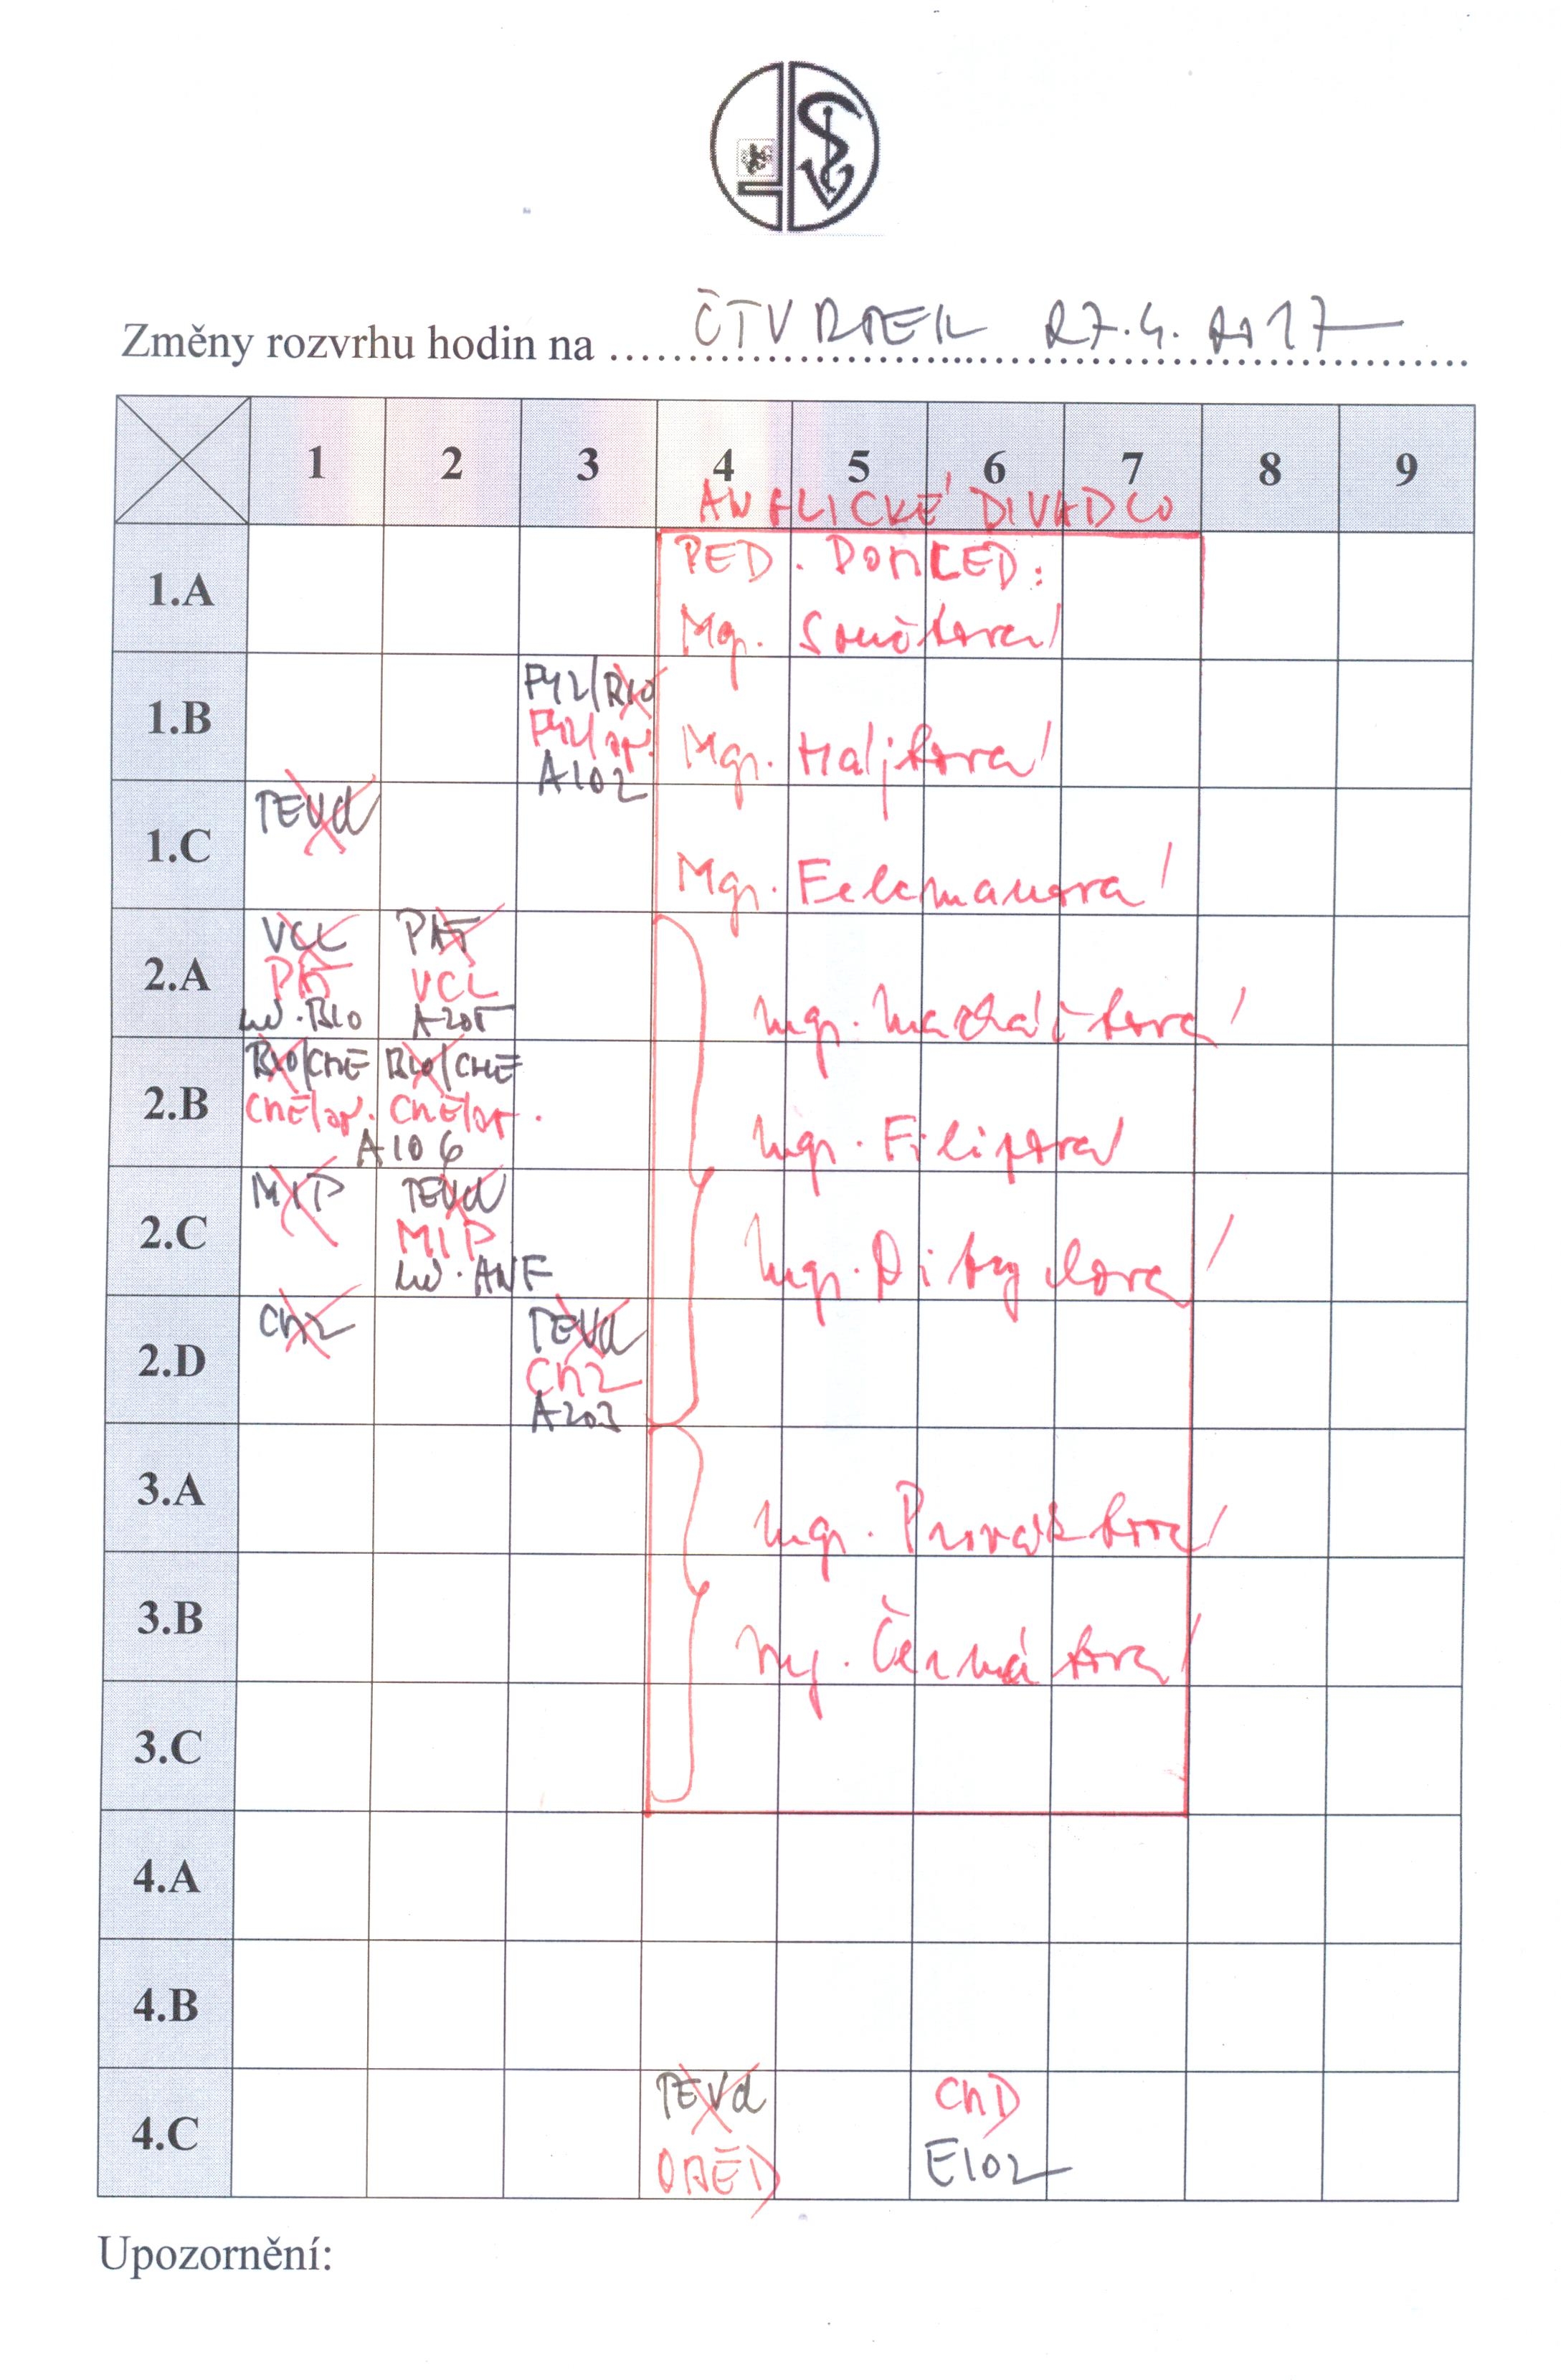 Změny rozvrhu hodin na ČTVRTEK 27.4.2017
1 2 3 4 5 6 7 8 9
ANGLICKÉ DIVADLO
1.A
PED. DOHLED:
Mgr. Součková
1.B
FYZ/BIO
FYZ/
A102
Mgr. Hájková
1.C
TEVd
Mgr. Felcmanová
2.A
VCL PAT
PAT VCL
UČ.BIO A205
Mgr. Macháčková
2.B
BIO/CHE BIO/CHE
CHE/ CHE/
A106
Mgr. Filipová
2.C
MIP TEVd
MIP
UČ.ANF
Mgr.
2.D
Ch2 TEVd
Ch2
A203
3.A
Mgr.
3.B
Ing. Čermáková
3.C
4.A
4.B
4.C
TEVd ChD
OBĚD E102
Upozornění: